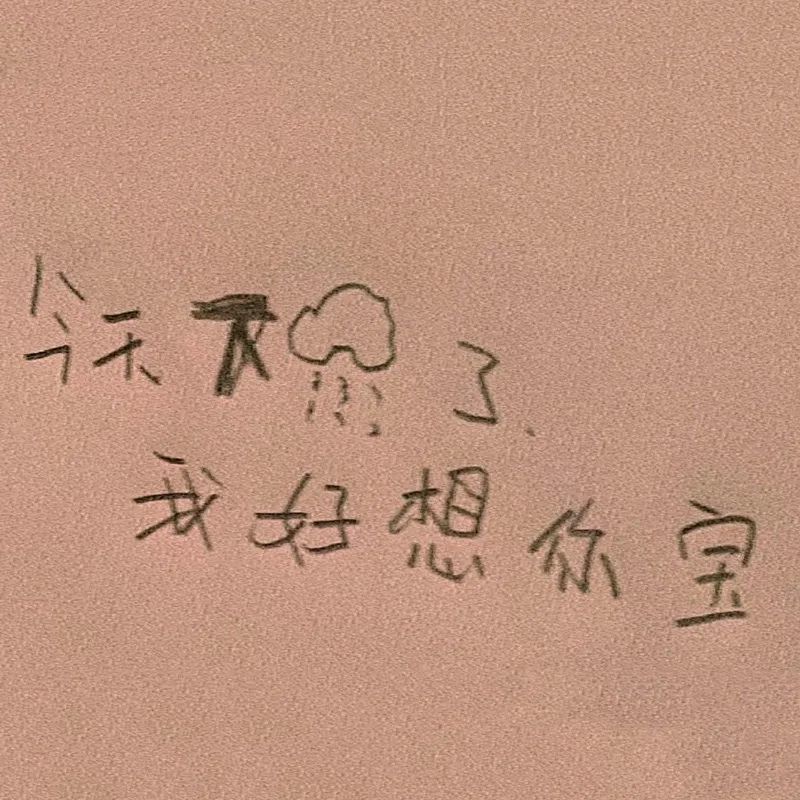 今天下🌧了.
我好想你宝